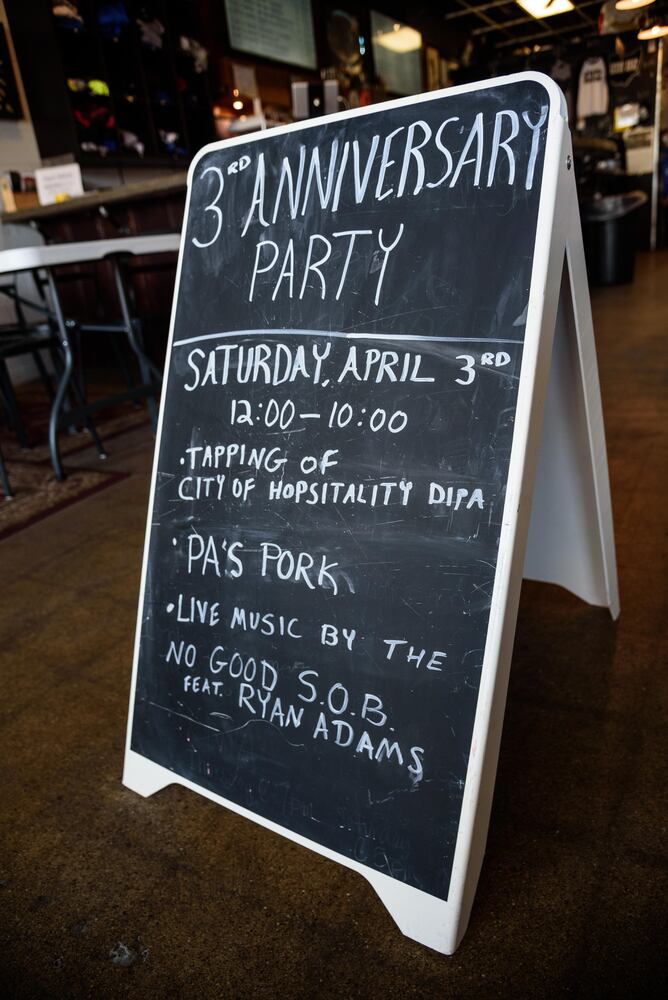 3RD ANNIVERSARY
PARTY
SATURDAY, APRIL 3RD
12:00-10:00
·TAPPING OF
CITY OF HOPSITALITY DIPA
· PA'S PORK
·LIVE MUSIC BY THE
NO GOOD S.O.B.
FEAT. RYAN ADAMS